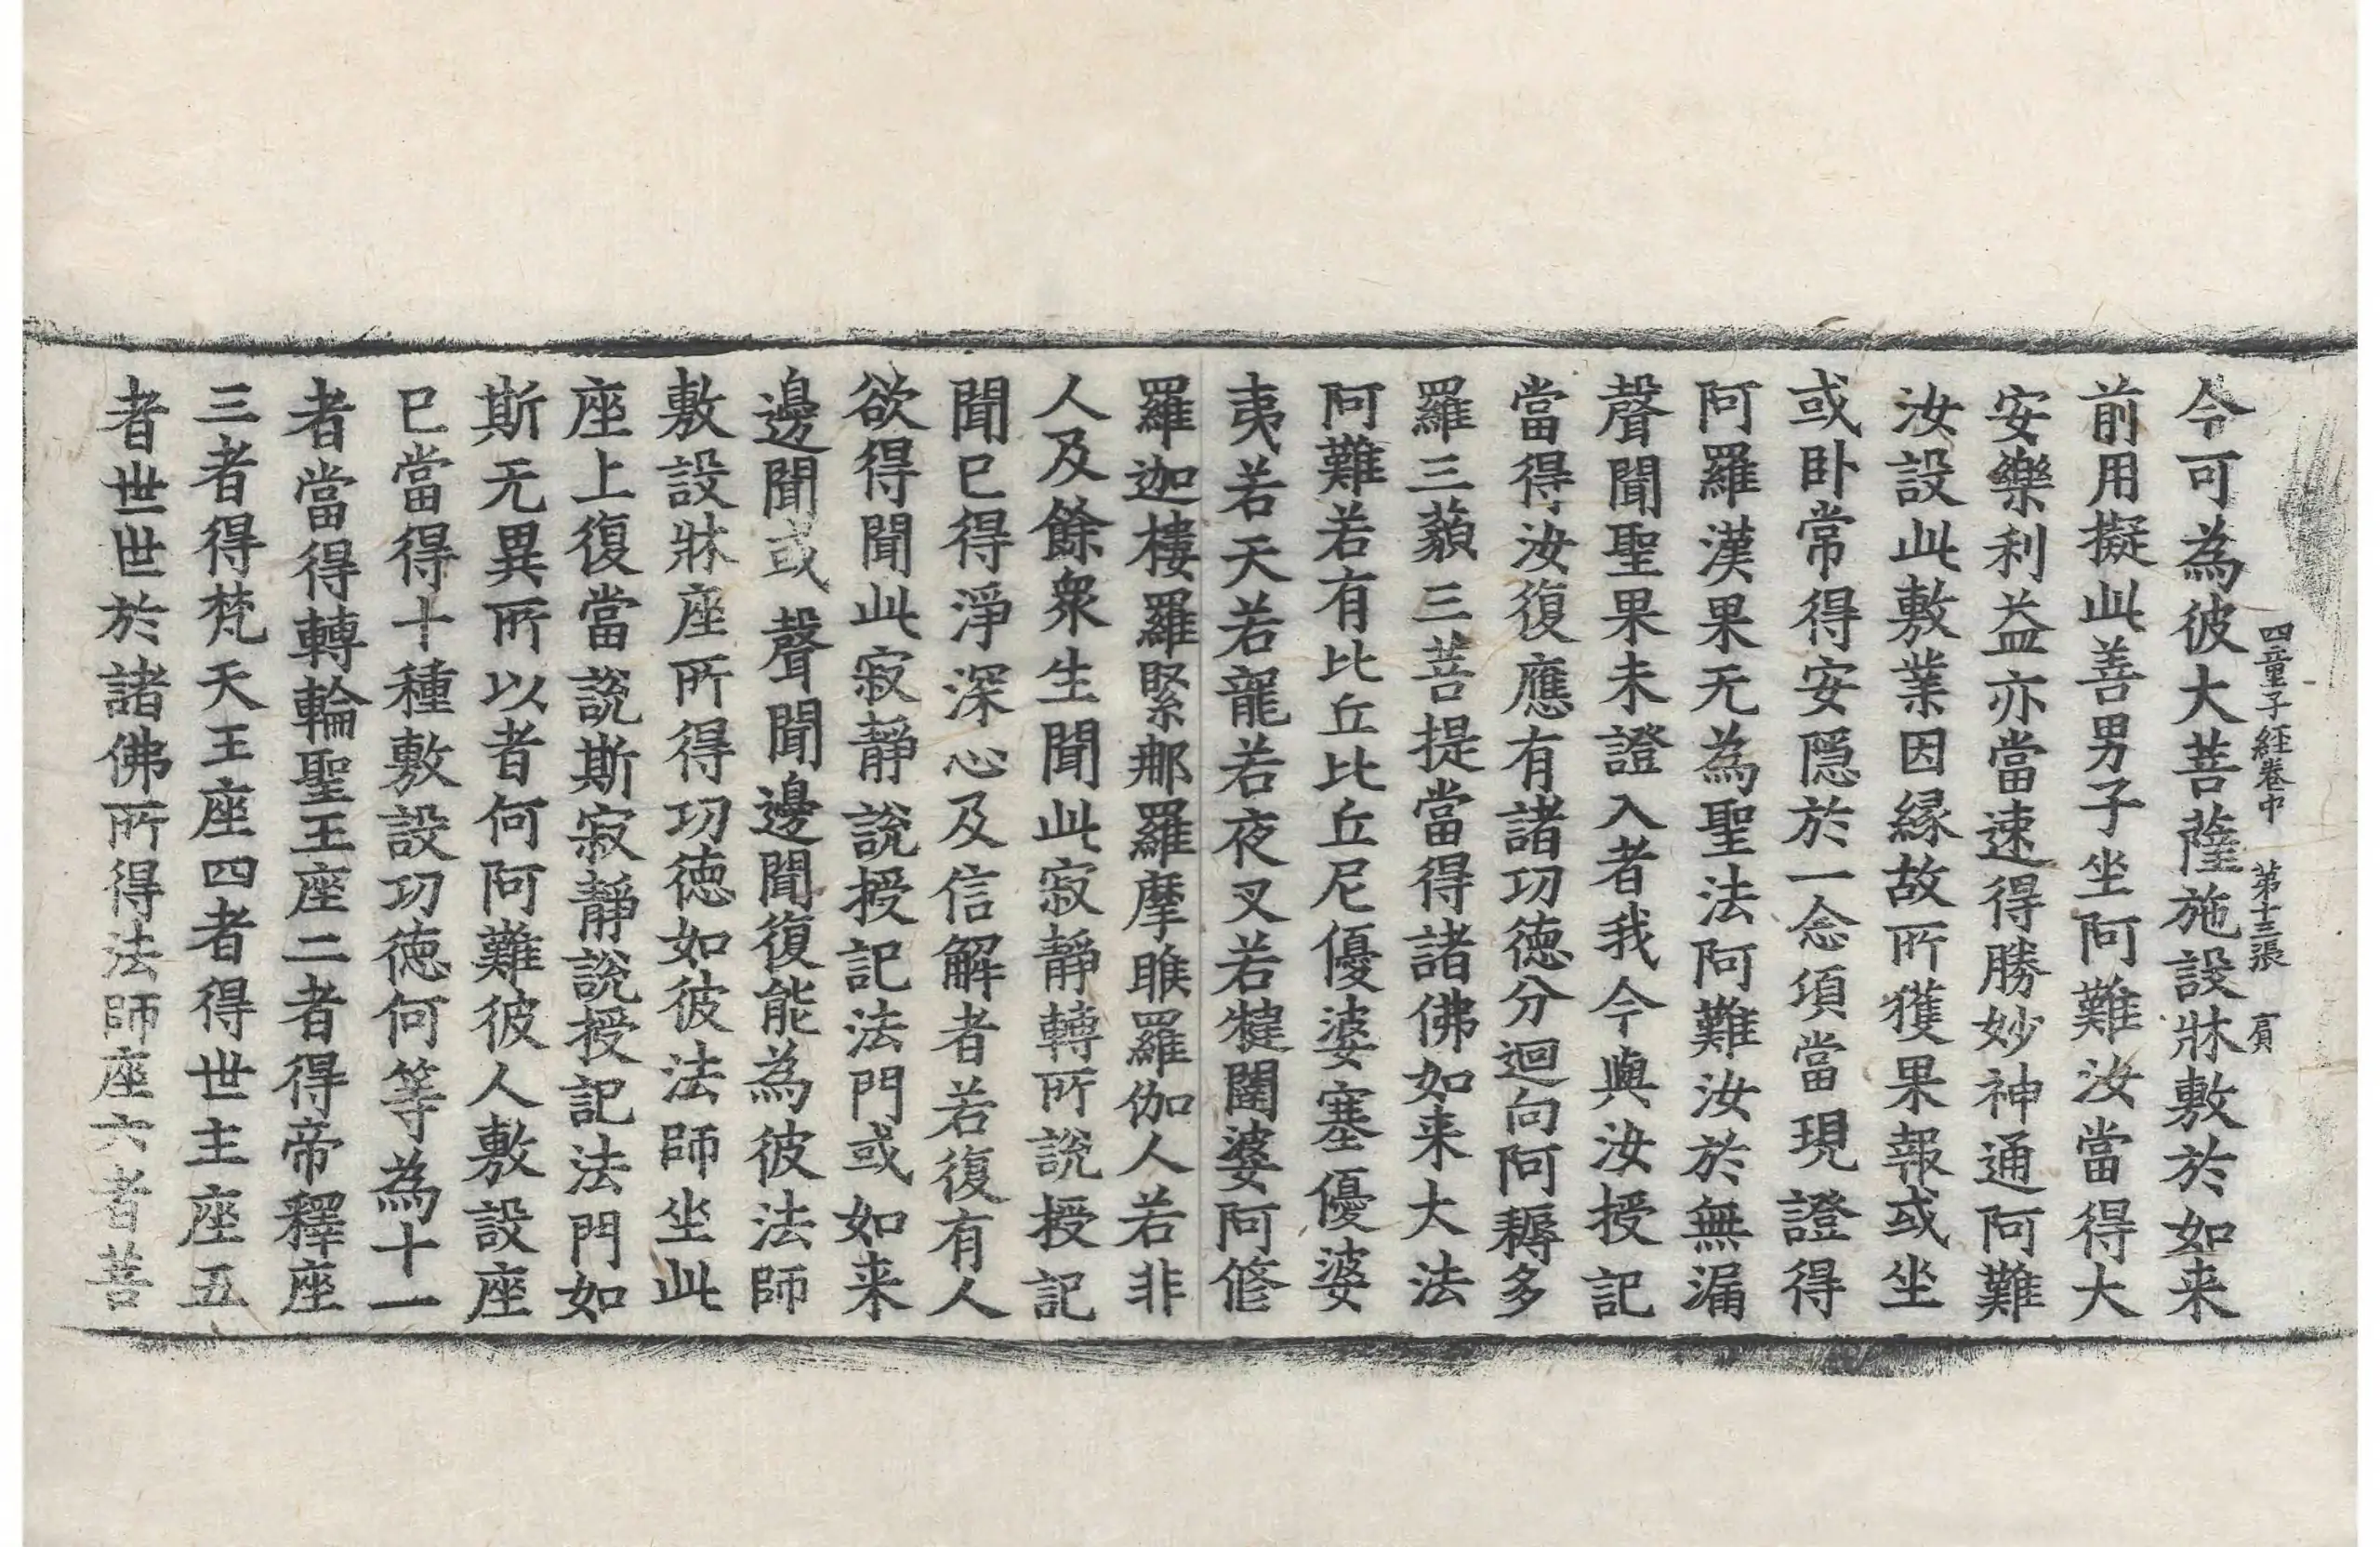 四童子経卷中　第十三張　賔
今可為彼大菩薩施設牀敷於如来
前用擬此善男子坐阿難汝當得大
安樂利益亦當速得勝妙神通阿難
汝設此敷業因縁故所獲果報或坐
或卧常得安隱於一念頃當現證得
阿羅漢果无為聖法阿難汝於無漏
聲聞聖果未證入者我今與汝授記
當得汝復應有諸功徳分迴向阿耨多
羅三藐三菩提當得諸佛如来大法
阿難若有比丘比丘尼優婆塞優婆
夷若天若龍若夜叉若揵闥婆阿修
羅迦樓羅緊那羅摩睺羅伽人若非
人及餘衆生聞此寂靜轉所說授記
聞已得淨深心及信解者若復有人
欲得聞此寂靜說授記法門或如来
邊聞或聲聞邊聞復能為彼法師
敷設牀座所得功徳如彼法師坐此
座上復當說斯寂靜說授記法門如
斯无異所以者何阿難彼人敷設座
已當得十種敷設功徳何等為十一
者當得轉輪聖王座二者得帝釋座
三者得梵天王座四者得世主座五
者世世於諸佛所得法師座六者菩